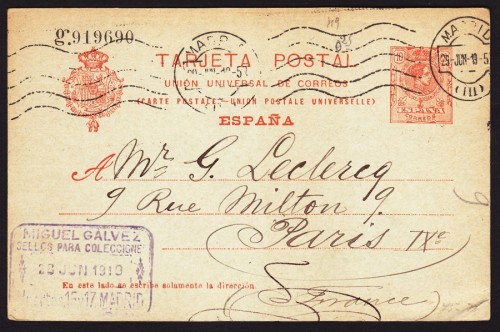 g.919690
TARJETA POSTAL
UNIÓN UNIVERSAL DE CORREOS
(CARTE POSTALE-UNION POSTALE UNIVERSELLE)
ESPAÑA
MADRID
29-JUN-10-5
(11)
10
ESPAÑA
A Mr. G. Leclercq
9 Rue Milton 9
Paris IXe
France
MIGUEL GALVEZ
SELLOS PARA COLECCIONE
28 JUN 1910
15-17 MADRID
En este lado se escribe solamente la dirección.
49
9